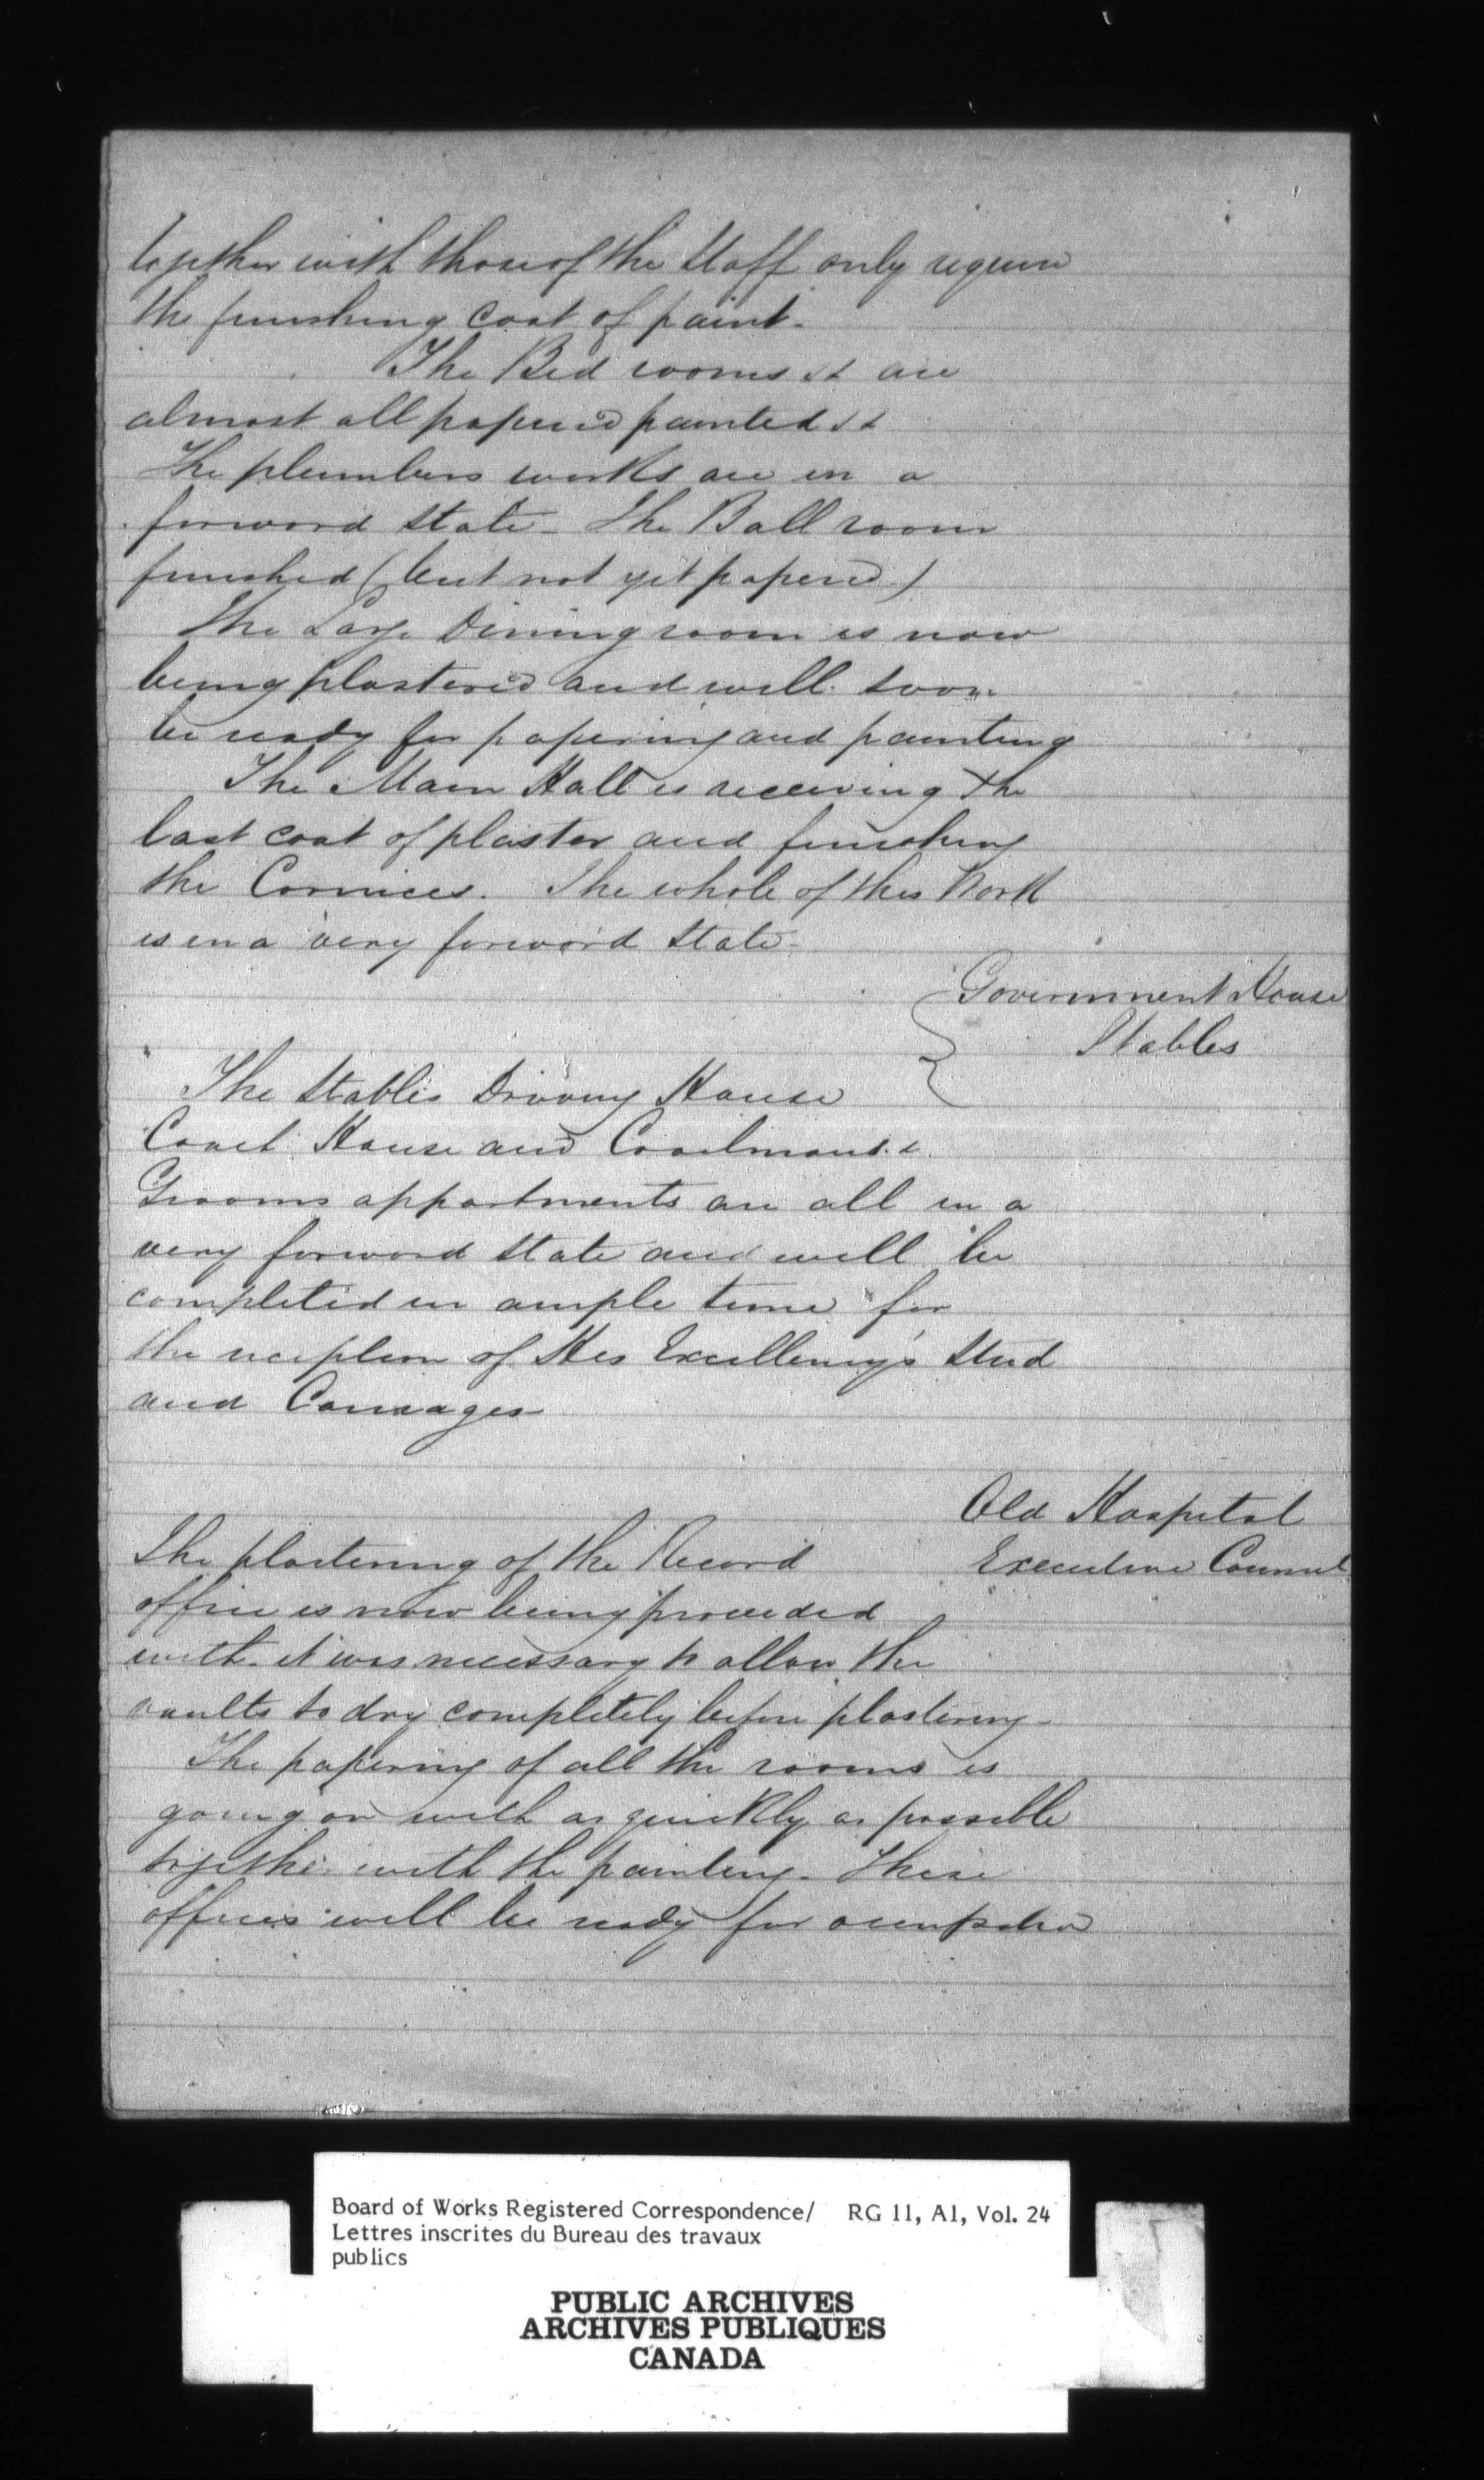 together with those of the Staff only require
the finishing coat of paint.
The Bed rooms &c are
almost all papered painted &c
The plumbers works are in a
forward state - The Ball room
finished (but not yet papered)
The Large Dining room is now
being plastered and will soon
be ready for papering and painting
The Main Hall is receiving the
last coat of plaster and finishing
the Cornices. The whole of this Work
is in a very forward state -
Government House
Stables
The Stables Driving House
Coach House and Coachmans &
Grooms appartments are all in a
very forward state and will be
completed in ample time for
the reception of His Excellency's Stud
and Carriages
Old Hospital
Executive Council
The plastering of the Record
office is now being proceeded
with. it was necessary to allow the
vaults to dry completely before plastering -
The papering of all the rooms is
going on with as quickly as possible
together with the painting. These
offices will be ready for occupation
Board of Works Registered Correspondence/ RG 11, A1, Vol. 24
Lettres inscrites du Bureau des travaux
publics
PUBLIC ARCHIVES
ARCHIVES PUBLIQUES
CANADA